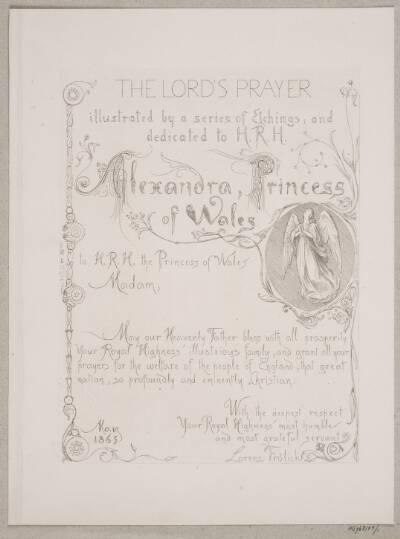 THE LORD'S PRAYER
illustrated by a series of Etchings, and
dedicated to H.R.H.
Alexandra, Princess
of Wales
to H.R.H. the Princess of Wales
Madam,
May our Heavenly Father bless with all prosperity
Your Royal Highness' illustrious family, and grant all your
prayers for the welfare of the people of England, that great
nation, so profoundly and eminently Christian.
With the deepest respect
Your Royal Highness' most humble
and most grateful servant
Nov.
1863
Lorenz Frölich